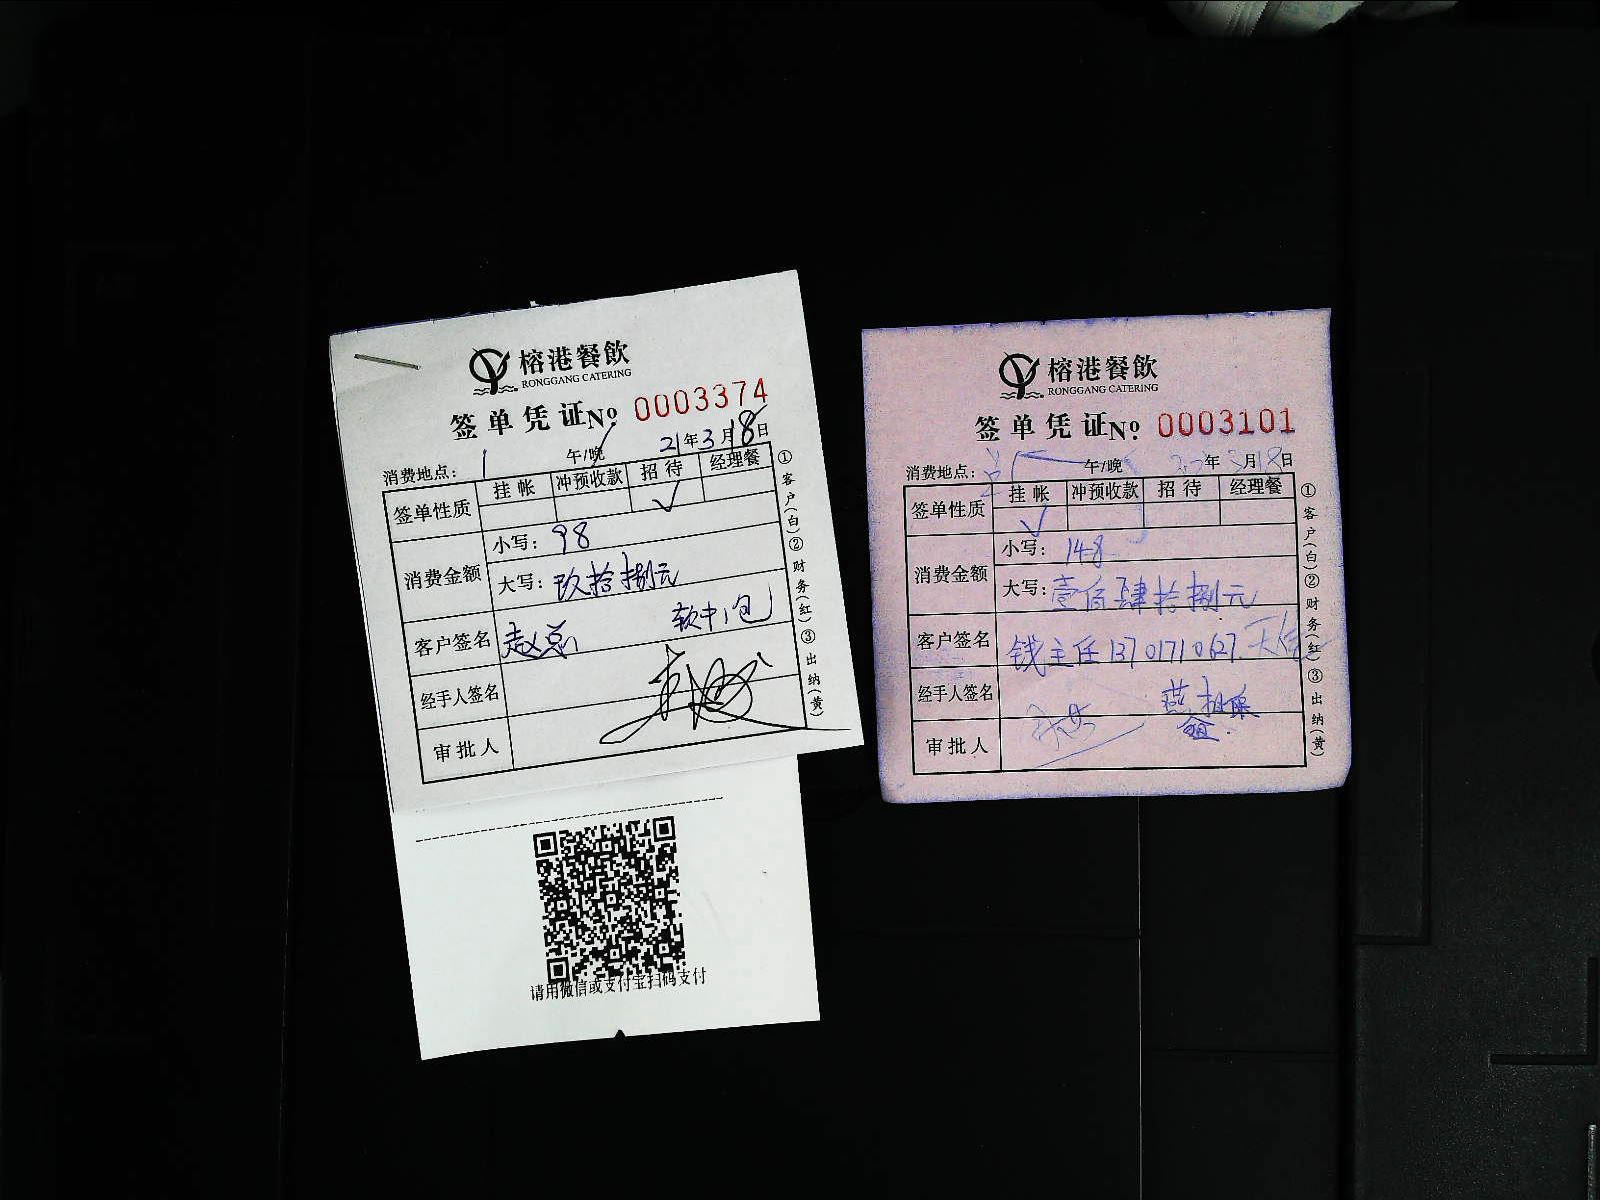 榕港餐飲
RONGGANG CATERING
签单凭证No. 0003374
午/晚 21年3月18日
消费地点：
签单性质 挂帐 冲预收款 招待 经理餐
✓
消费金额 小写：98
大写：玖拾捌元
软中1包
客户签名 赵总
经手人签名
审批人
①客户(白)②财务(红)③出纳(黄)
请用微信或支付宝扫码支付
榕港餐飲
RONGGANG CATERING
签单凭证No. 0003101
消费地点： 午/晚 年3月18日
签单性质 挂帐 冲预收款 招待 经理餐
✓
消费金额 小写：148
大写：壹佰肆拾捌元
客户签名 钱主任13701710627.
经手人签名
审批人
①客户(白)②财务(红)③出纳(黄)